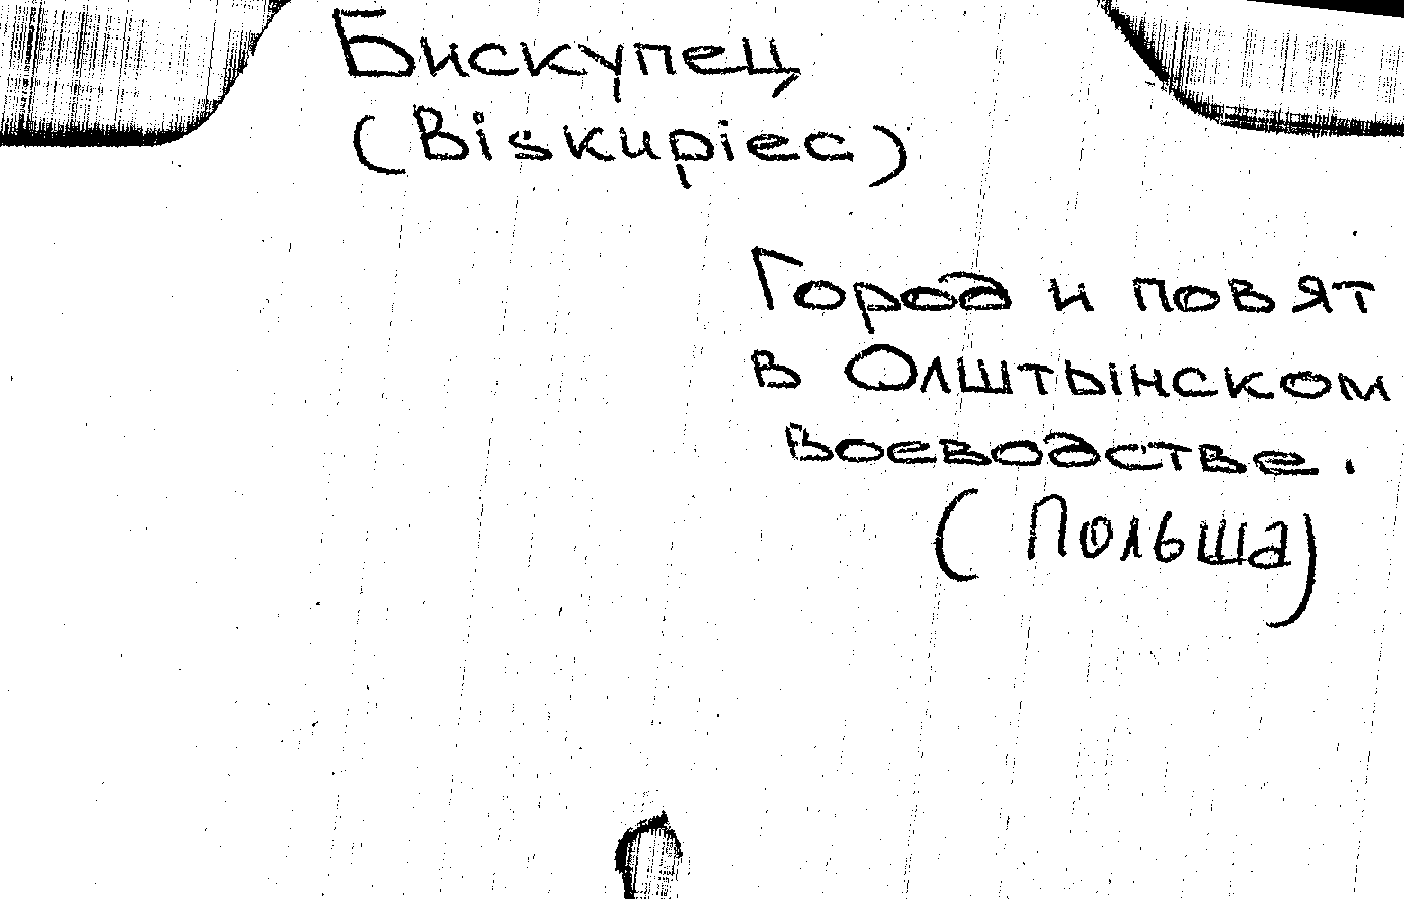 Бискупец
(Biskupiec)
Город и повят
в Олштынском
воеводстве.
(Польша)